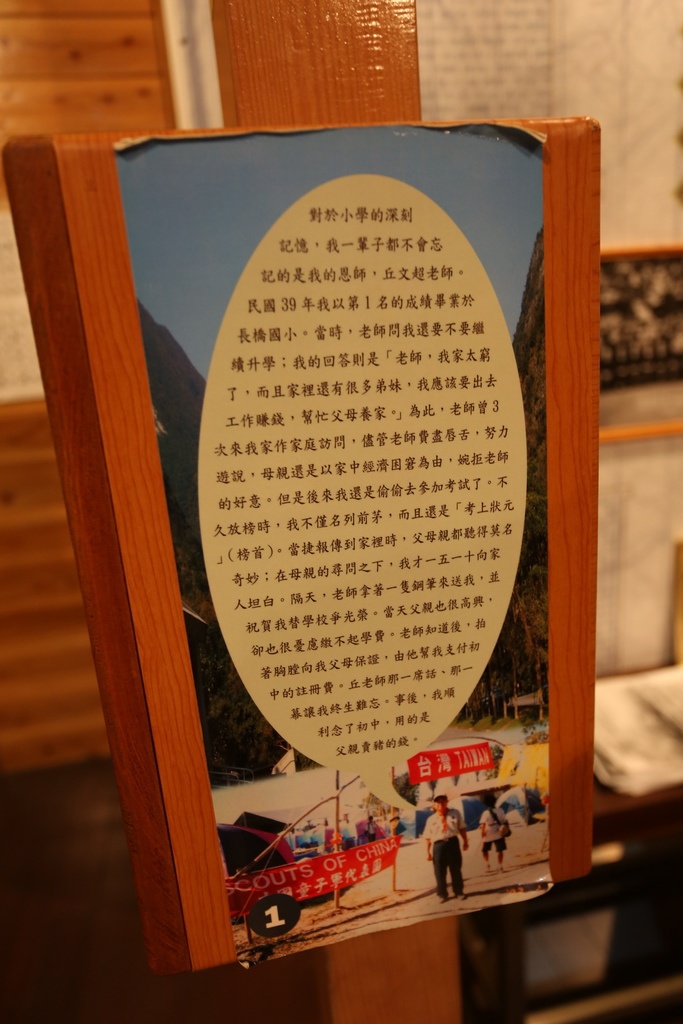 對於小學的深刻
記憶，我一輩子都不會忘
記的是我的恩師，丘文超老師。
民國 39 年我以第 1 名的成績畢業於
長橋國小。當時，老師問我還要不要繼
續升學；我的回答則是「老師，我家太窮
了，而且家裡還有很多弟妹，我應該要出去
工作賺錢，幫忙父母養家。」為此，老師曾 3
次來我家作家庭訪問，儘管老師費盡唇舌，努力
遊說，母親還是以家中經濟困窘為由，婉拒老師
的好意。但是後來我還是偷偷去參加考試了。不
久放榜時，我不僅名列前茅，而且還是「考上狀元
」(榜首)。當捷報傳到家裡時，父母親都聽得莫名
奇妙；在母親的尋問之下，我才一五一十向家
人坦白。隔天，老師拿著一隻鋼筆來送我，並
祝賀我替學校爭光榮。當天父親也很高興，
卻也很憂慮繳不起學費。老師知道後，拍
著胸膛向我父母保證，由他幫我支付初
中的註冊費。丘老師那一席話、那一
幕讓我終生難忘。事後，我順
利念了初中，用的是
父親賣豬的錢。
台灣 TAIWAN
SCOUTS OF CHINA
國童子軍代表團
1